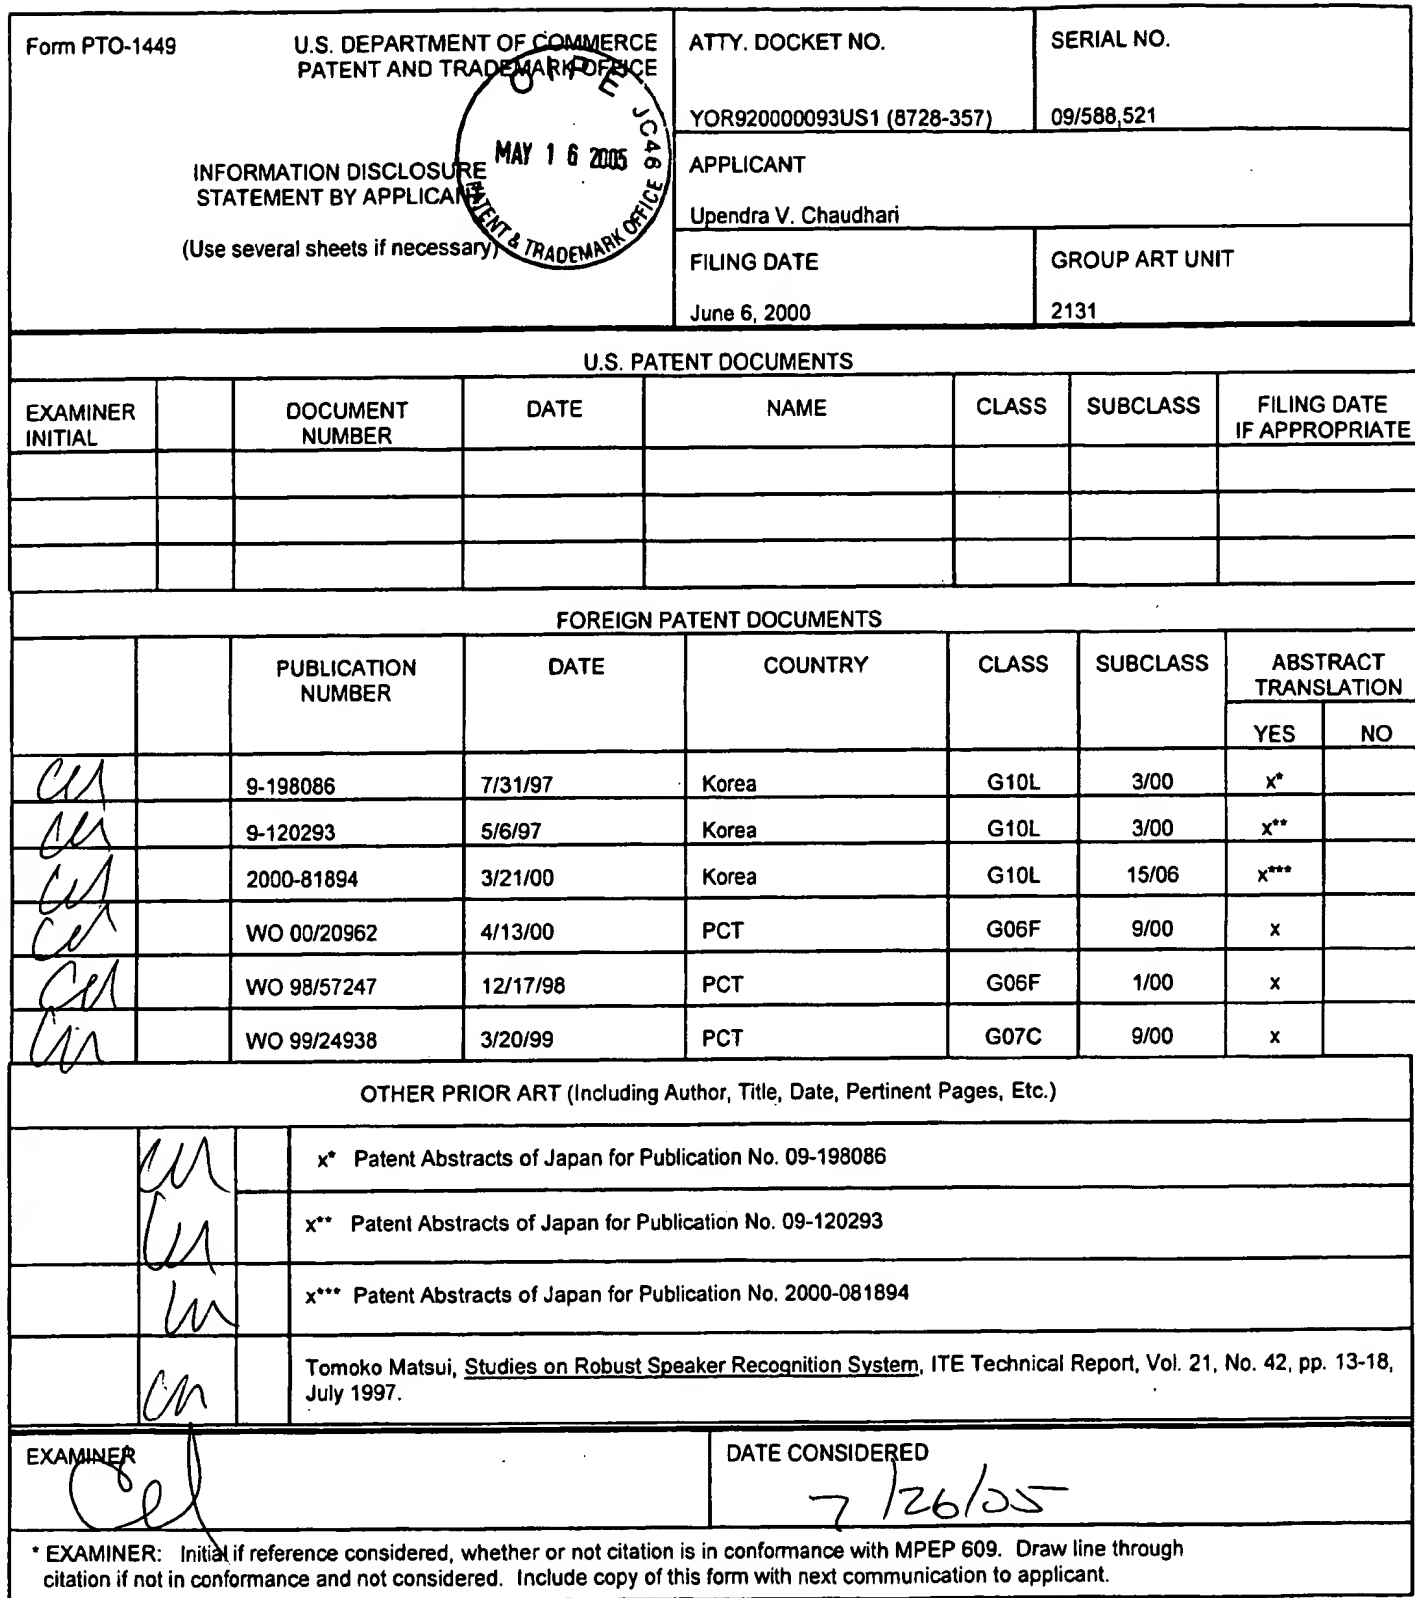 Form PTO-1449
U.S. DEPARTMENT OF COMMERCE
PATENT AND TRADEMARK OFFICE
INFORMATION DISCLOSURE
STATEMENT BY APPLICANT
(Use several sheets if necessary)
OIPE JC46
MAY 16 2005
PATENT & TRADEMARK OFFICE
ATTY. DOCKET NO.
YOR920000093US1 (8728-357)
SERIAL NO.
09/588,521
APPLICANT
Upendra V. Chaudhari
FILING DATE
June 6, 2000
GROUP ART UNIT
2131
U.S. PATENT DOCUMENTS
EXAMINER INITIAL DOCUMENT NUMBER DATE NAME CLASS SUBCLASS FILING DATE IF APPROPRIATE
FOREIGN PATENT DOCUMENTS
PUBLICATION NUMBER DATE COUNTRY CLASS SUBCLASS ABSTRACT TRANSLATION
YES NO
9-198086 7/31/97 Korea G10L 3/00 x*
9-120293 5/6/97 Korea G10L 3/00 x**
2000-81894 3/21/00 Korea G10L 15/06 x***
WO 00/20962 4/13/00 PCT G06F 9/00 x
WO 98/57247 12/17/98 PCT G06F 1/00 x
WO 99/24938 3/20/99 PCT G07C 9/00 x
OTHER PRIOR ART (Including Author, Title, Date, Pertinent Pages, Etc.)
x* Patent Abstracts of Japan for Publication No. 09-198086
x** Patent Abstracts of Japan for Publication No. 09-120293
x*** Patent Abstracts of Japan for Publication No. 2000-081894
Tomoko Matsui, Studies on Robust Speaker Recognition System, ITE Technical Report, Vol. 21, No. 42, pp. 13-18,
July 1997.
EXAMINER
DATE CONSIDERED
7/26/05
* EXAMINER: Initial if reference considered, whether or not citation is in conformance with MPEP 609. Draw line through
citation if not in conformance and not considered. Include copy of this form with next communication to applicant.